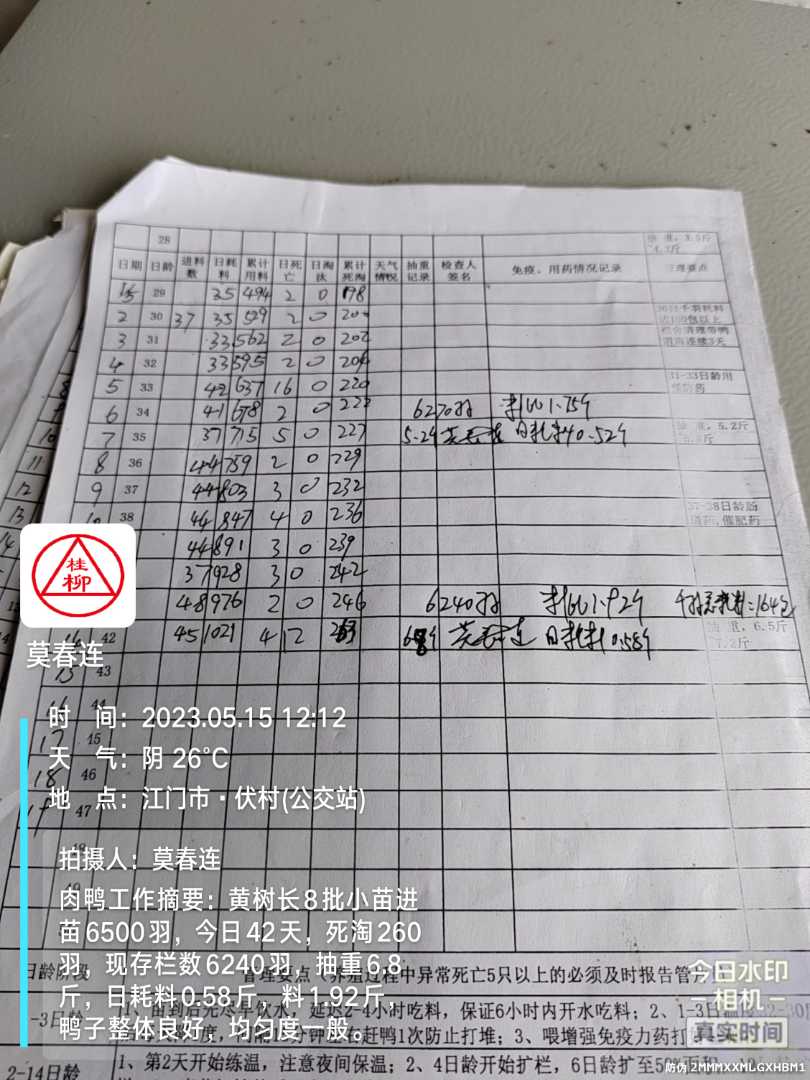 28
日期 日龄 进料数 日耗料 累计用料 日死亡 日淘汰 累计死淘 天气情况 抽重记录 检查人签名 免疫、用药情况记录 管理要点
29 35 494 2 0 198
2 30 37 35 529 2 0 200
3 31 33 562 2 0 202
4 32 33 595 2 0 204
5 33 42 637 16 0 220
31-33日龄用
6 34 41 678 2 0 222 6270羽 料比1.75斤
7 35 37 715 5 0 227 5.2斤 莫春连 日耗料0.52斤
8 36 44 759 2 0 229
9 37 44 803 3 0 232
10 38 44 847 4 0 236
37-38日龄肠道药,催肥药
44 891 3 0 239
37 928 3 0 242
48 976 2 0 246 6240羽 料比1.92斤
42 45 1021 4 12 莫春连 日耗料0.58斤
标准，6.5斤
7.2斤
15 43
16 44
17 45
18 46
47
桂柳
莫春连
时 间：2023.05.15 12:12
天 气：阴 26℃
地 点：江门市·伏村(公交站)
拍摄人：莫春连
肉鸭工作摘要：黄树长8批小苗进
苗6500羽，今日42天，死淘260
羽，现存栏数6240羽，抽重6.8
斤，日耗料0.58斤，料1.92斤，
鸭子整体良好，均匀度一般。
日龄阶段 管理要点（养殖过程中异常死亡5只以上的必须及时报告管
-3日龄 延迟2-4小时吃料，保证6小时内开水吃料；2、1-3日温度
赶鸭1次防止打堆；3、喂增强免疫力药
2-14日龄 1、第2天开始练温，注意夜间保温；2、4日龄开始扩栏，6日龄扩至50%面积
今日水印
相机
真实时间
防伪 2MMMXXMLGXHBM1